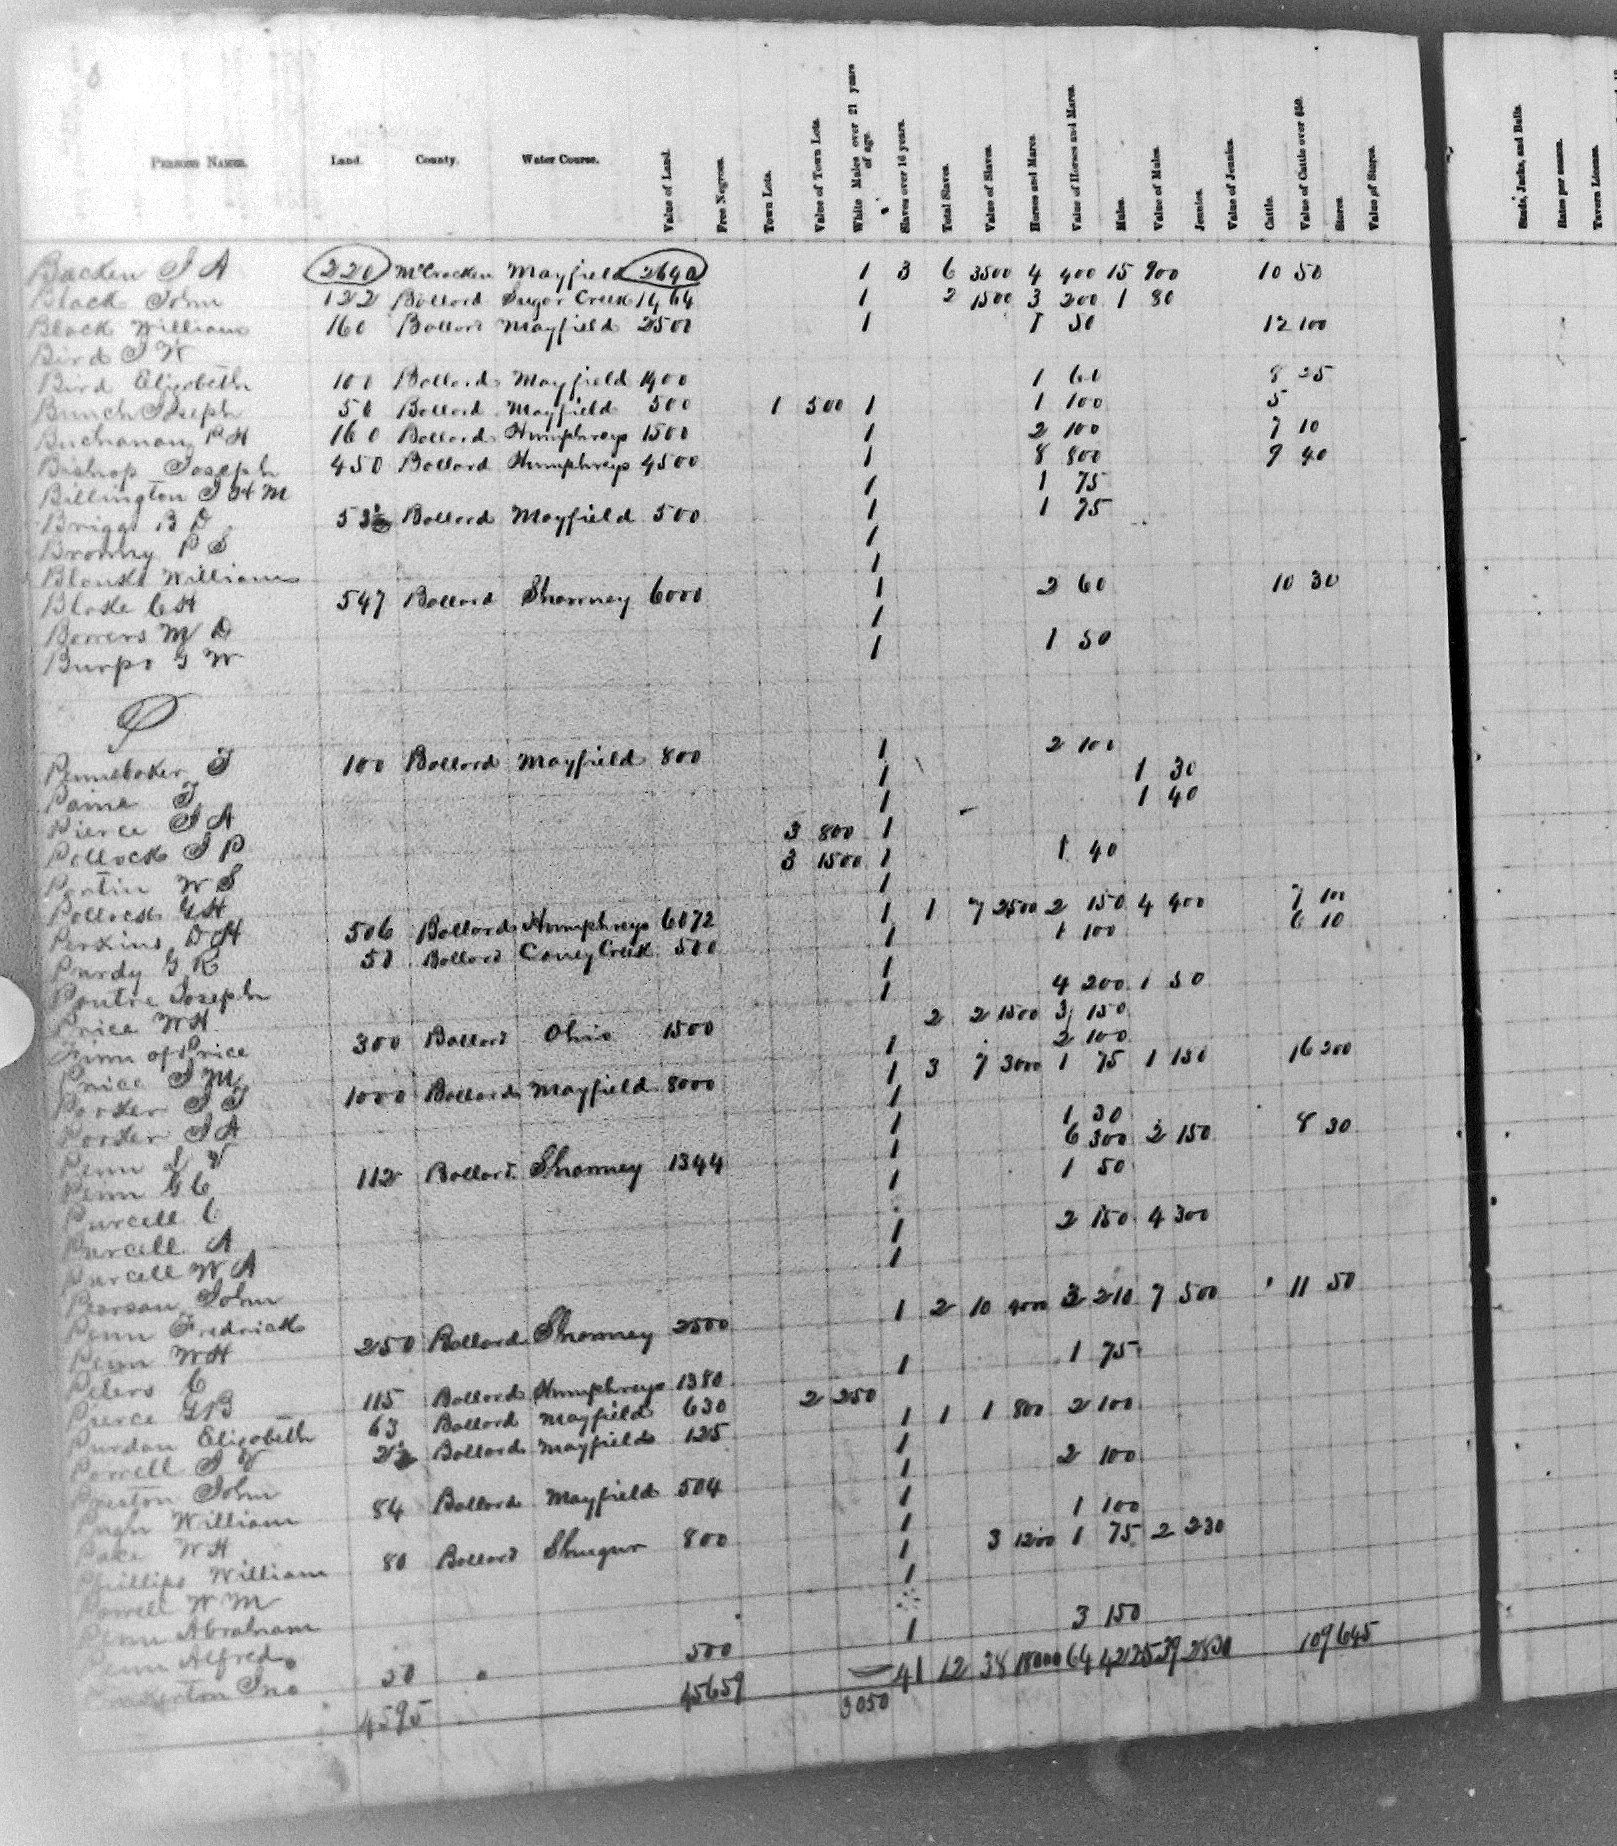 Persons Names. Land. County. Water Course. Value of Land. Free Negroes. Town Lots. Value of Town Lots. White Males over 21 years of age. Slaves over 16 years. Total Slaves. Value of Slaves. Horses and Mares. Value of Horses and Mares. Mules. Value of Mules. Jennies. Value of Jennies. Cattle. Value of Cattle over $50. Stores. Value of Stores. Studs, Jacks, and Bulls. Rates per season. Tavern License.
J A 220 McCracken Mayfield 2640 1 3 6 3500 4 400 15 900 10 50
Black John 122 Ballard Sugar Creek 1464 1 2 1500 3 200 1 80
Black William 160 Ballard Mayfield 2500 1 1 50 12 100
Bird J W
Bird Elizabeth 100 Ballard Mayfield 1400 1 60 8 25
Bunch Joseph 50 Ballard Mayfield 500 1 500 1 1 100 5
Buchanan P H 160 Ballard Humphreys 1500 1 2 100 7 10
Bishop Joseph 450 Ballard Humphreys 4500 1 8 800 9 40
Billington J H M 1 1 75
Briggs B D 53½ Ballard Mayfield 500 1 1 75
P S 1
Blanks William 1
Blake C H 547 Ballard Shawney 6000 1 2 60 10 30
Bowers M D 1
Burpo G W 1 1 50
P
Pennebaker T 100 Ballard Mayfield 800 1 2 100
Paine T 1 1 30
Pierce J A 1 1 40
Pollock J P 3 800 1
Partin W S 3 1500 1 1 40
Pollock G H 1
Perkins D H 506 Ballard Humphreys 6072 1 1 7 2500 2 150 4 400 7 100
Purdy G R 50 Ballard Caney Creek 500 1 1 100 6 10
Joseph 1
Price W H 1 4 200 1 50
Firm of Price 300 Ballard Ohio 1500 2 2 1500 3 150
Price J M 1 2 100
Porter J J 1000 Ballard Mayfield 8000 1 3 7 3000 1 75 1 150 16 200
Porter J A 1
Penn 1 1 30
Penn G C 112 Ballard Shawney 1344 1 6 300 2 150 8 30
Purcell C 1 1 50
Purcell A
Purcell W A 1 2 150 4 300
Pearson John 1
Penn Fredrick
Penn W H 250 Ballard Shawney 2500 1 2 10 4000 3 210 7 500 11 50
Peters C
Pierce G B 115 Ballard Humphreys 1380 1 1 75
Purdan Elizabeth 63 Ballard Mayfield 630 2 250
Powell J V 2½ Ballard Mayfield 125 1 1 1 800 2 100
Preston John 1
Pugh William 84 Ballard Mayfield 504 1 2 100
Pace W H 1
Phillips William 80 Ballard 800 1 1 100
Powell W M 1 3 1200 1 75 2 230
Penn Abraham 1
Penn Alfred
Jno 50 500 1 3 150
4595 45659 3050 41 12 38 18000 64 4225 39 2830 109 645